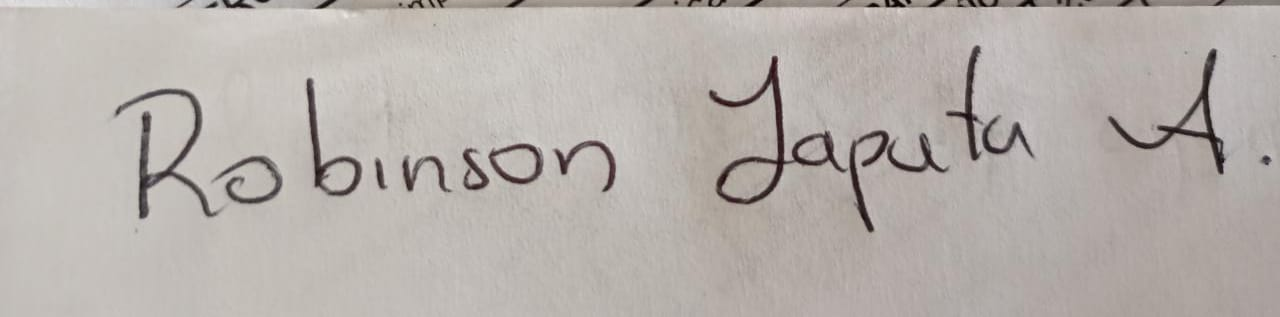 Robinson Japuta A.